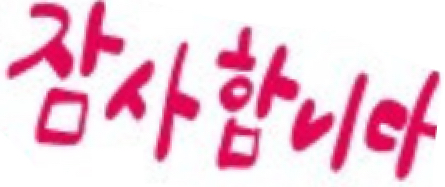 잠사합니다